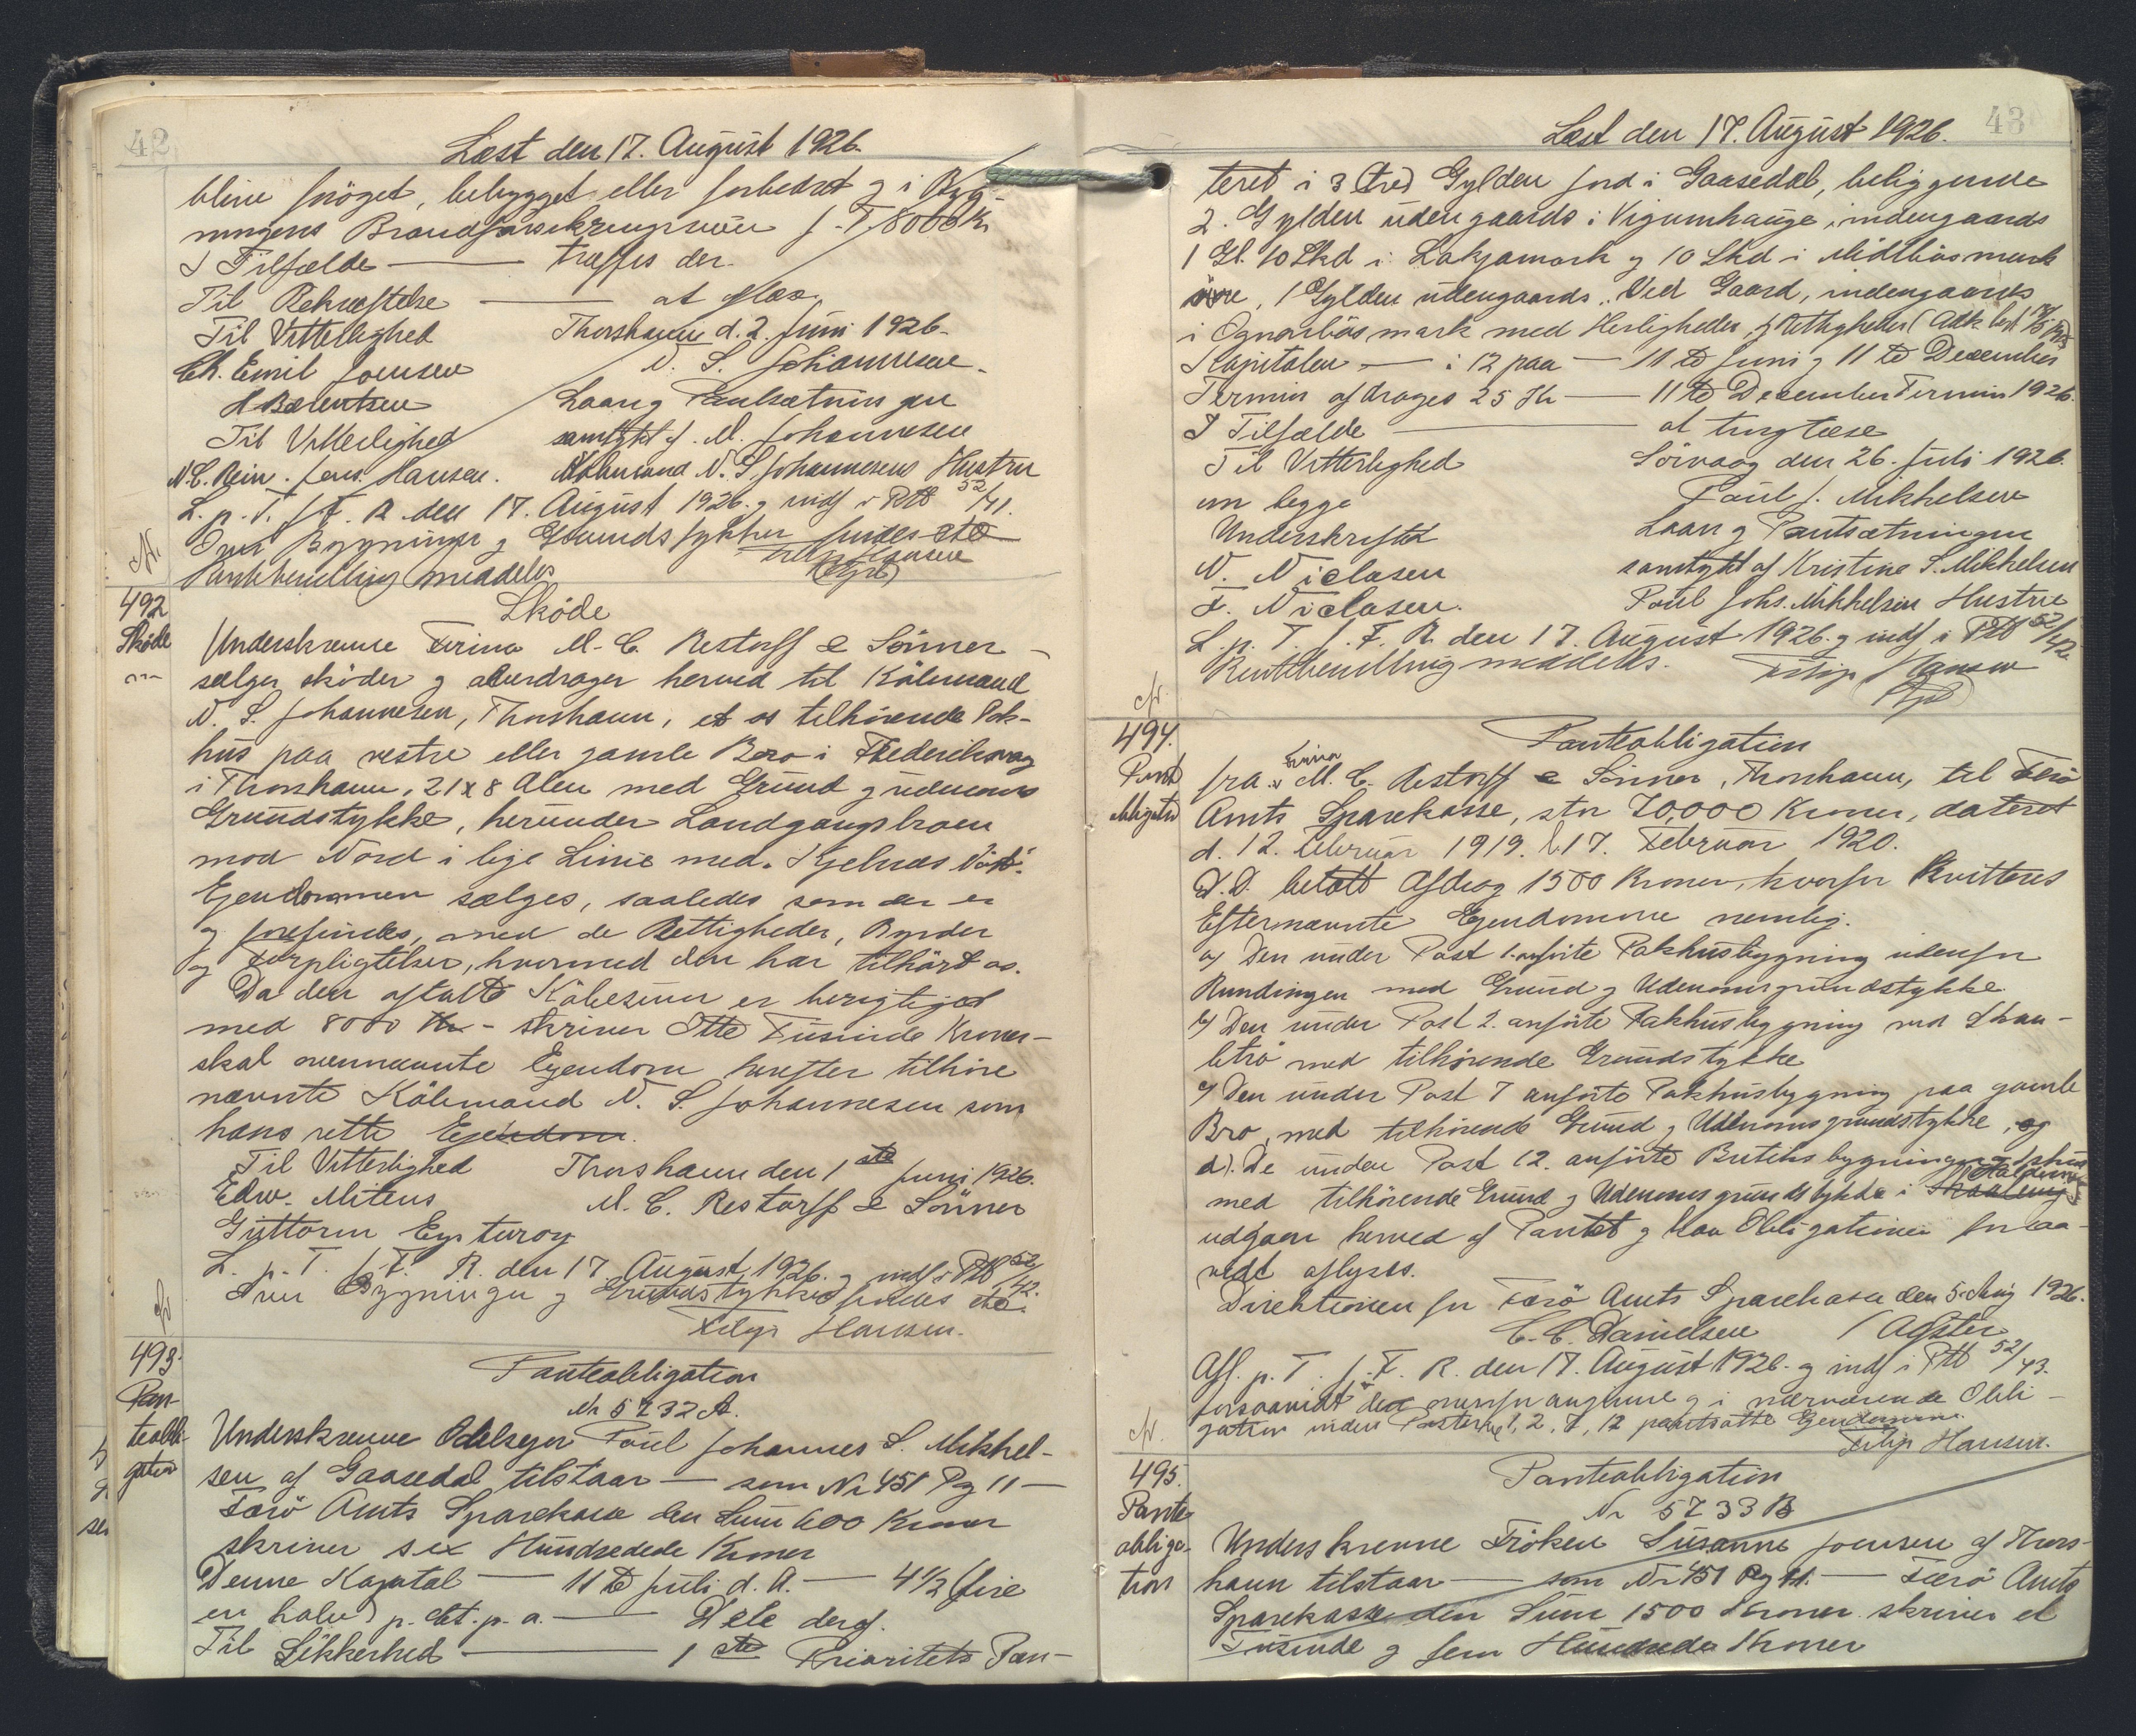 42
Læst den 17. August 1926.
blive forøget, bebygget eller forbedret og i Byg-
ningens Brandforsikringssum f. T. 8000 Kr
I Tilfælde — træffes der.
Til Bekræftelse — at
Til Vitterlighed Thorshavn d. 2. Juni 1926.
Ch. Emil Joensen N. S. Johannesen.
H Bærentsen Laan og Pantsætningen
Til Vitterlighed samtykt af. M. Johannesen
N. C. Rein. Jens. Hansen. Købmand N. S. Johannesens Hustru
L. p. T. f. F. R. den 17. August 1926. og indf i Ptb 52/41.
Over Bygninger og Grundstykker findes etc
Pantbeholling meddeles Filip Hansen
(cst)
Nr.
492
Skøde
Skøde
Underskrevne Firma M. C. Restorff & Sönner
sælger skøder og overdrager herved til Købmand
N. S. Johannesen, Thorshavn, et os tilhørende Pak-
hus paa vestre eller gamle Bro i Frederiksvaag
i Thorshavn, 21 x 8 Alen med Grund og udenoms
Grundstykke, herunder Landgangsbroen
mod Nord i lige Linie med "Kjelnæs Nöst".
Ejendommen sælges, saaledes som den er
og forefindes, med de Rettigheder, Byrder
og Forpligtelser, hvormed den har tilhørt os.
Da den aftalte Købesum er berigtiget
med 8000 Kr - skriver Otte Tusinde Kroner -
skal ovennævnte Ejendom herefter tilhøre
nævnte Købmand N. S. Johannesen som
hans rette Ejendom.
Til Vitterlighed Thorshavn den 1ste Juni 1926.
Edw. Mitens M. C. Restorff & Sönner
Guttorm Eysturoy
L. p. T. f. F. R. den 17 August 1926. og indf i Ptb 52/42.
Over Bygninger og Grundstykke findes etc.
Filip Hansen.
Nr
493.
Pan-
teobli-
gation
Panteobligation
Nr 5232 A.
Underskrevne Odelsejer Poul Johannes S. Mikkel-
sen af Gaasedal tilstaar — som Nr 451 Pg 11 —
Færø Amts Sparekasse den Sum 600 Kroner
skriver sex Hundrede Kroner
Denne Kapital — 11te Juli d. A. — 4½ (fire
en halv) p. Ct. p. a. — Dele deraf.
Til Sikkerhed — 1ste Prioritets Pan-
43
Læst den 17. August 1926.
teret i 3 (tre) Gylden Jord i Gaasedal, beliggende
2. Gylden udengaards i Vigumhauge, indengaards
1 Gl. 10 Skd i Lakjamork og 10 Skd i Midlbøsmark
1 Gylden udengaards "Ved Gaard, indengaards
i Ognarbøsmark med Herligheder og Rettigheder (Adk best
Kapitalen — i 12 paa — 11te Juni og 11te December
Termin afdrages 25 Kr — 11te December Termin 1926.
I Tilfælde — at tinglæse
Til Vitterlighed Sörvaag den 26. Juli 1926.
om begge Poul J. Mikkelsen
Underskrifter Laan og Pantsætningen
N. Niclasen samtykt af Kristine S. Mikkelsen
F. Niclasen. Poul Johs. Mikkelsen Hustru
L. p. T. f. F. R. den 17. August 1926. og indf i Ptb 52/42.
Rentebeholling meddeles. Filip Hansen
(cst)
Nr.
494.
Pant
obligation
Panteobligation
fra Firma M. C. Restorff & Sönner, Thorshavn, til Færö
Amts Sparekasse, stor 70,000 Kroner, dateret
d. 12. Februar 1919. l. 17. Februar 1920.
D. D. betalt Afdrag 1500 Kroner, hvorfor kvitteres
Efternævnte Ejendomme nemlig:
a) Den under Post 1. anførte Pakhusbygning udenfor
Rundingen med Grund og Udenomsgrundstykke
b) Den under Post 2. anførte Pakhusbygning ved Skan-
sen med tilhørende Grundstykke
c) Den under Post 7 anførte Pakhusbygning paa gamle
Bro, med tilhørende Grund og Udenomsgrundstykke, og
d). De under Post 12. anførte Butiksbygninger og
med tilhørende Grund og Udenomsgrundstykke i
udgaar herved af Pantet og kan Obligationen forsaa-
vidt aflyses.
Direktionen for Færö Amts Sparekasse den 5. Aug 1926.
C. C. Danielsen
Afl. p. T. f. F. R. den 17. August 1926. og indf i Ptb 52/43.
forsaavidt den ovenfor angivne og i nærværende Obli-
gation under Posterne 1, 2, 7, 12 pantsatte Ejendomme.
Filip Hansen.
Nr.
495.
Pante
obliga-
tion
Panteobligation
Nr 5233 B
Underskrevne Fröken Susanne Joensen af Thors-
havn tilstaar — som Nr 451 Pg 11. — Færö Amts
Sparekasse den Sum 1500 Kroner skriver et
Tusinde og fem Hundrede Kroner